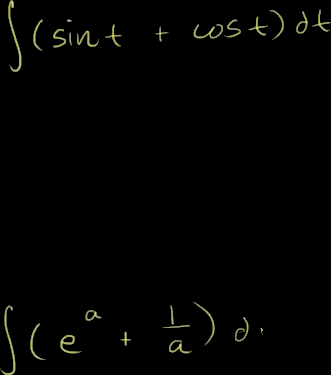 ∫(sint + cost) dt
∫(e^a + 1/a) d